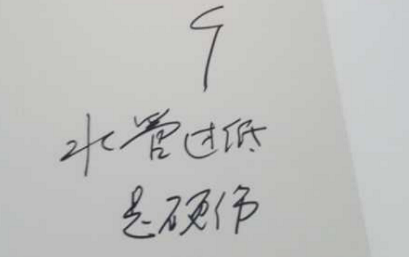 9
水管过低
是硬伤